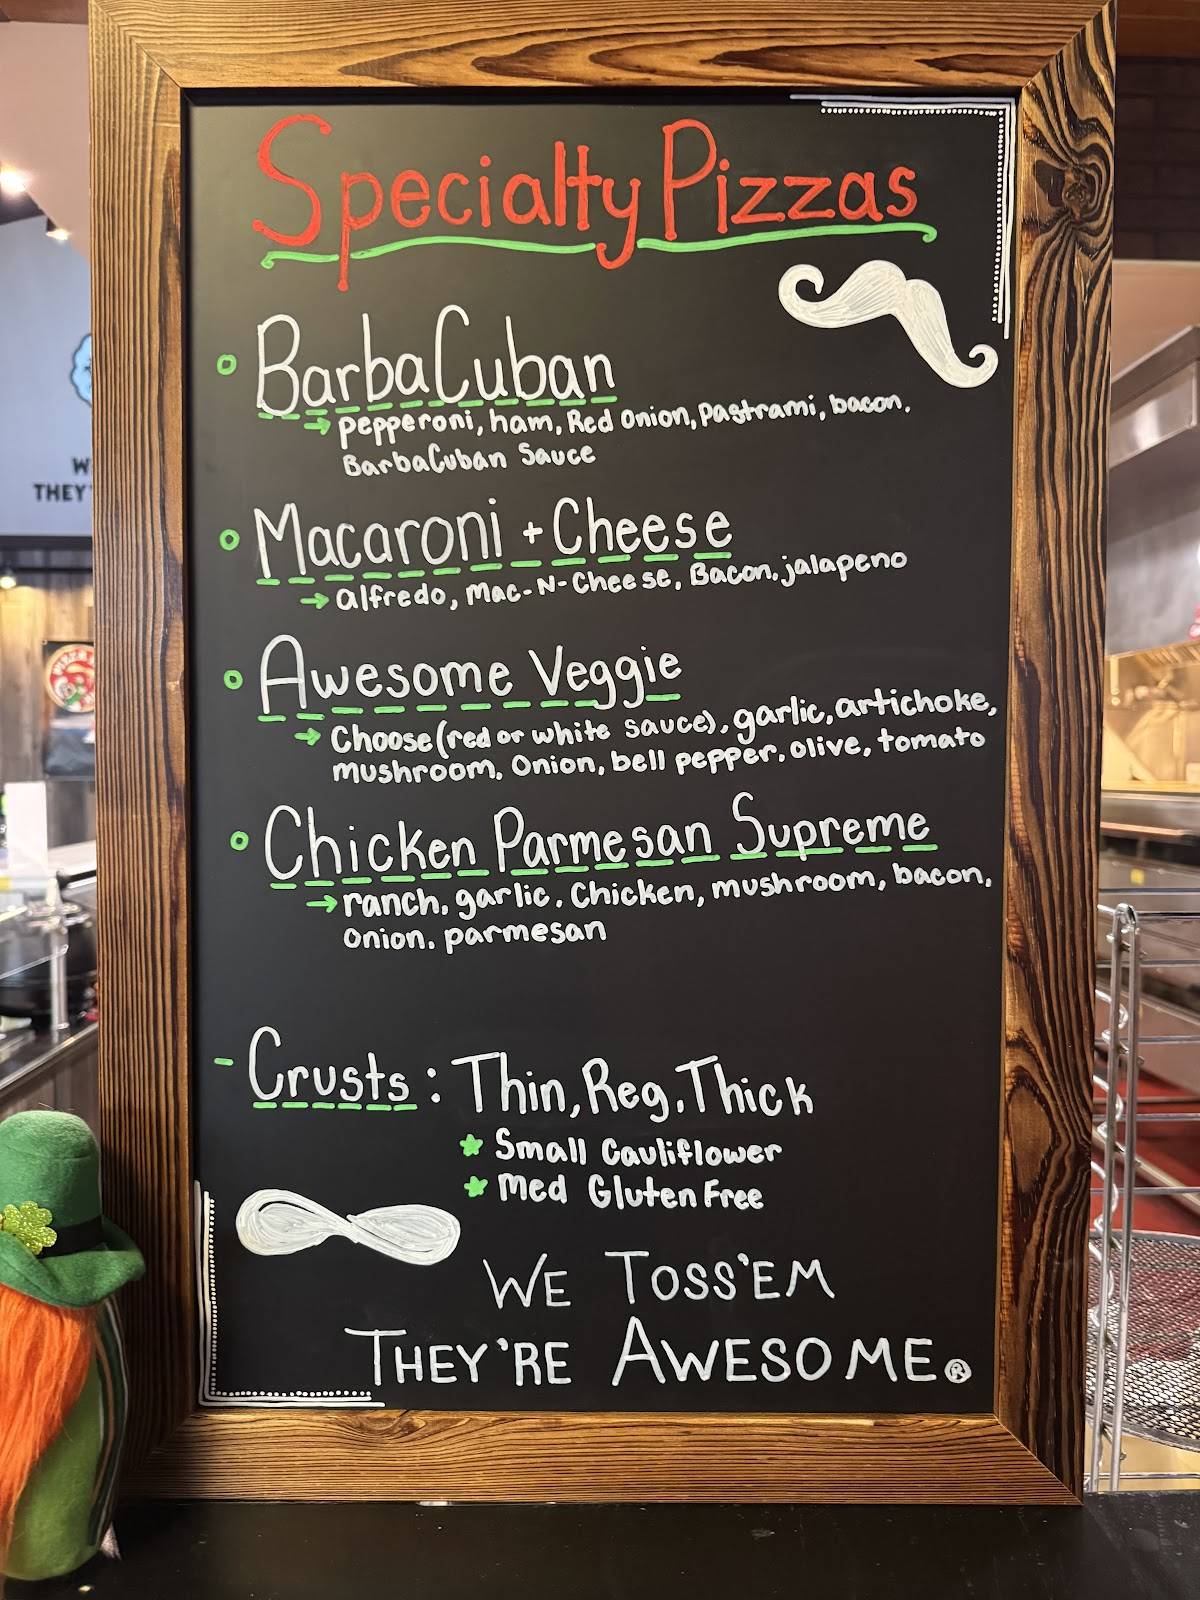 Specialty Pizzas
BarbaCuban
pepperoni, ham, Red Onion, Pastrami, bacon,
BarbaCuban Sauce
Macaroni + Cheese
alfredo, Mac-N-Cheese, Bacon, jalapeno
Awesome Veggie
Choose (red or white sauce), garlic, artichoke,
mushroom, Onion, bell pepper, olive, tomato
Chicken Parmesan Supreme
ranch, garlic, Chicken, mushroom, bacon,
Onion, parmesan
- Crusts: Thin, Reg, Thick
Small Cauliflower
Med Gluten Free
WE TOSS'EM
THEY'RE AWESOME®
W
THEY'